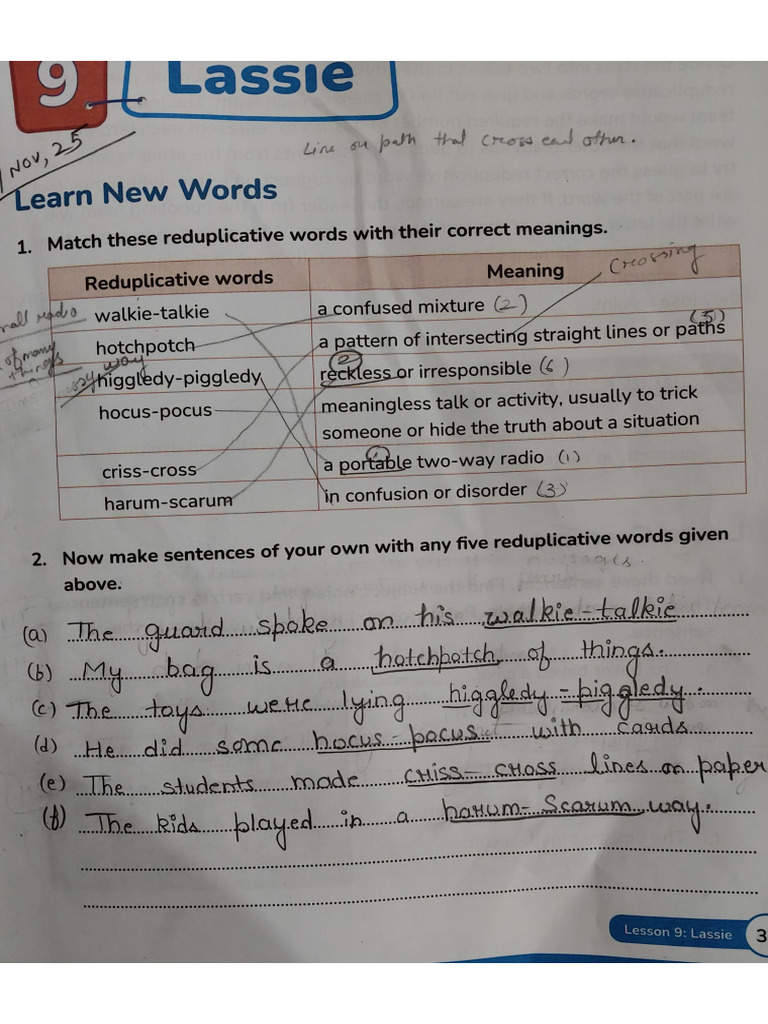 9 Lassie
Nov, 25
Line or path that cross each other.
Learn New Words
1. Match these reduplicative words with their correct meanings.
Crossing
Reduplicative words Meaning
walkie-talkie a confused mixture (2)
hotchpotch a pattern of intersecting straight lines or paths (5)
of many things
way
higgledy-piggledy reckless or irresponsible (6)
hocus-pocus meaningless talk or activity, usually to trick
someone or hide the truth about a situation
criss-cross a portable two-way radio (1)
harum-scarum in confusion or disorder (3)
2. Now make sentences of your own with any five reduplicative words given
above.
(a) The guard spoke on his walkie-talkie
(b) My bag is a hotchpotch of things.
(c) The toys were lying higgledy-piggledy.
(d) He did some hocus-pocus with cards
(e) The students made criss-cross lines on paper
(f) The kids played in a harum-Scarum way.
Lesson 9: Lassie 3